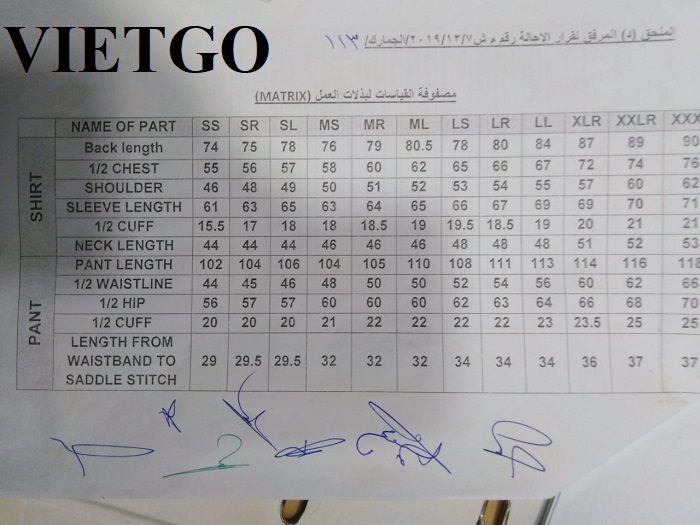 VIETGO
الملحق (د) المرفق لقرار الاحالة رقم م ش/٢٠١٩/١٣/٧/الجمارك/ ١١٣
مصفوفة القياسات لبذلات العمل (MATRIX)
NAME OF PART SS SR SL MS MR ML LS LR LL XLR XXLR XXX
SHIRT
Back length 74 75 78 76 79 80.5 78 80 84 87 89 90
1/2 CHEST 55 56 57 58 60 62 65 66 67 72 74 76
SHOULDER 46 48 49 50 51 52 53 54 55 57 60 62
SLEEVE LENGTH 61 63 65 63 64 65 66 67 69 69 70 71
1/2 CUFF 15.5 17 18 18 18.5 19 19.5 18.5 19 20 21 21
NECK LENGTH 44 44 44 46 46 46 48 48 48 51 52 53
PANT
PANT LENGTH 102 104 106 104 105 110 108 111 113 114 116 118
1/2 WAISTLINE 44 45 46 48 50 50 52 54 56 60 62 66
1/2 HIP 56 57 57 60 60 60 62 63 64 66 68 70
1/2 CUFF 20 20 20 21 22 22 22 22 23 23.5 25 25
LENGTH FROM
WAISTBAND TO 29 29.5 29.5 32 32 32 34 34 34 36 37 37
SADDLE STITCH